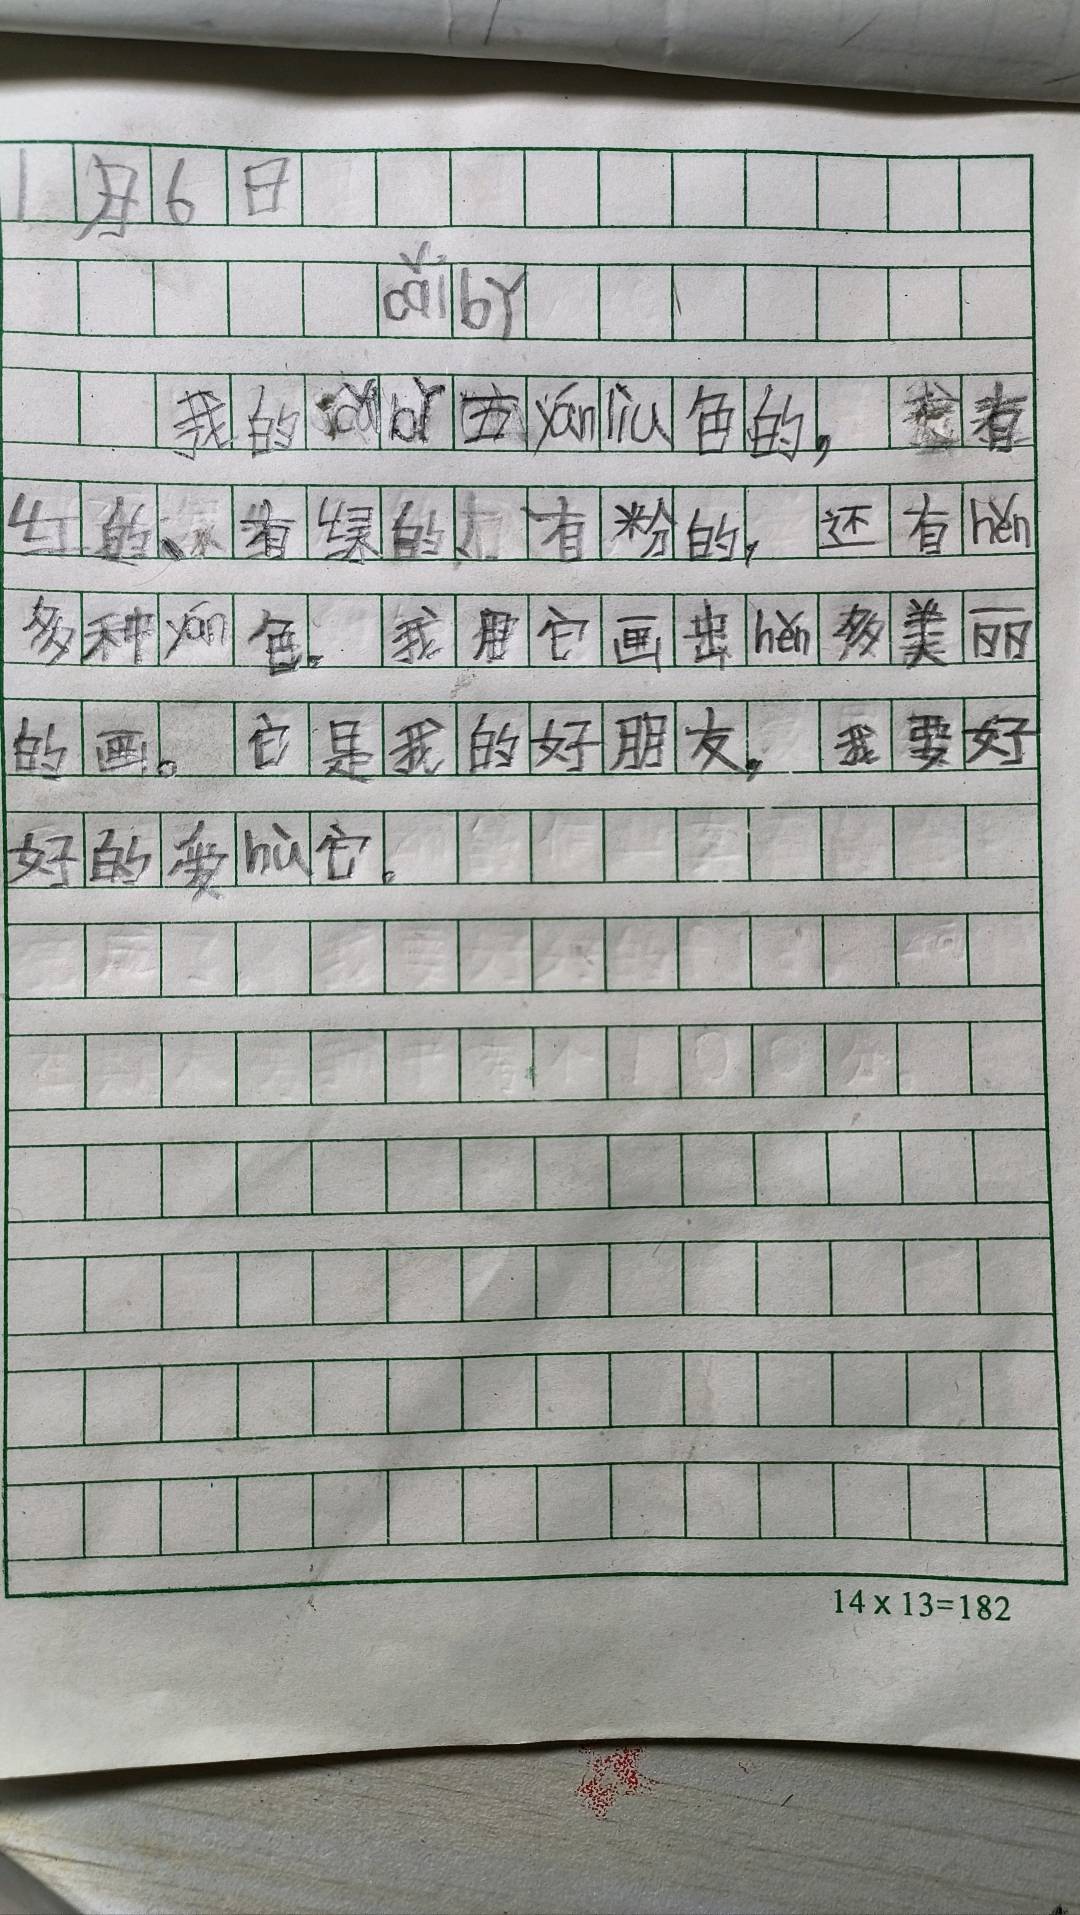 1月6日
cǎi bǐ
我的cǎi bǐ五yán liù色的，我有
红的、有绿的、有粉的，还有hěn
多种yán色。我用它画出hěn多美丽
的画。它是我的好朋友，我要好
好的爱hù它。
14×13=182